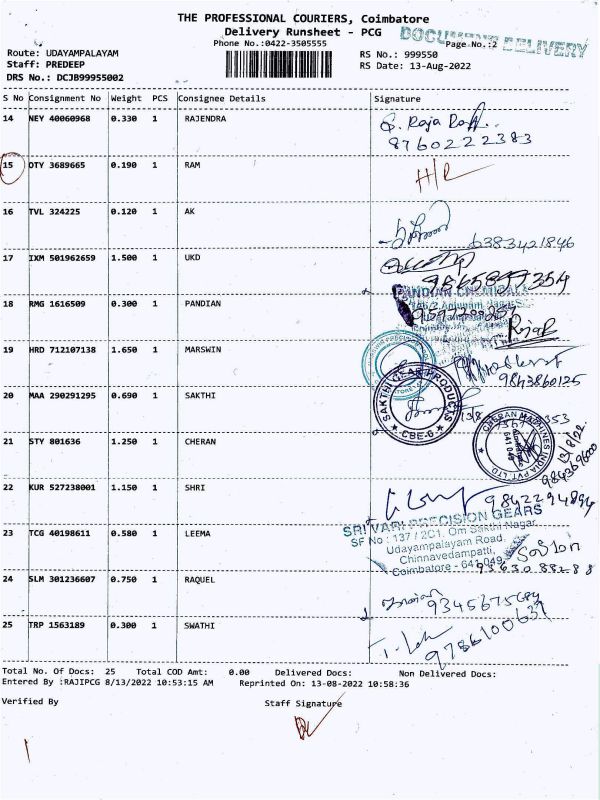 THE PROFESSIONAL COURIERS, Coimbatore
Delivery Runsheet - PCG
DOCUMENT DELIVERY
Phone No.:0422-3505555
Page No.:2
Route: UDAYAMPALAYAM
RS No.: 999550
Staff: PREDEEP
RS Date: 13-Aug-2022
DRS No.: DCJB99955002
S No Consignment No Weight PCS Consignee Details Signature
14 NEY 40060968 0.330 1 RAJENDRA
8760222383
15 OTY 3689665 0.190 1 RAM
H/R
16 TVL 324225 0.120 1 AK
6383421846
17 IXM 501962659 1.500 1 UKD
18 RMG 1616509 0.300 1 PANDIAN
PANDIAN CHEMICALS
19 HRD 712107138 1.650 1 MARSWIN
9843860125
20 MAA 290291295 0.690 1 SAKTHI
SAKTHI GEAR PRODUCTS
CBE-6
21 STY 801636 1.250 1 CHERAN
CHERAN MACHINES INDIA PVT. LTD
641 049
13/8/22
22 KUR 527238001 1.150 1 SHRI
9842294894
SRI VARI PRECISION GEARS
SF No : 137 / 2C1, Om Sakthi Nagar,
23 TCG 40198611 0.580 1 LEEMA
Udayampalayam Road,
Chinnavedampatti,
Coimbatore - 641 049.
24 SLM 301236607 0.750 1 RAQUEL
25 TRP 1563189 0.300 1 SWATHI
9786100637
Total No. Of Docs: 25 Total COD Amt: 0.00 Delivered Docs: Non Delivered Docs:
Entered By :RAJIPCG 8/13/2022 10:53:15 AM Reprinted On: 13-08-2022 10:58:36
Verified By Staff Signature